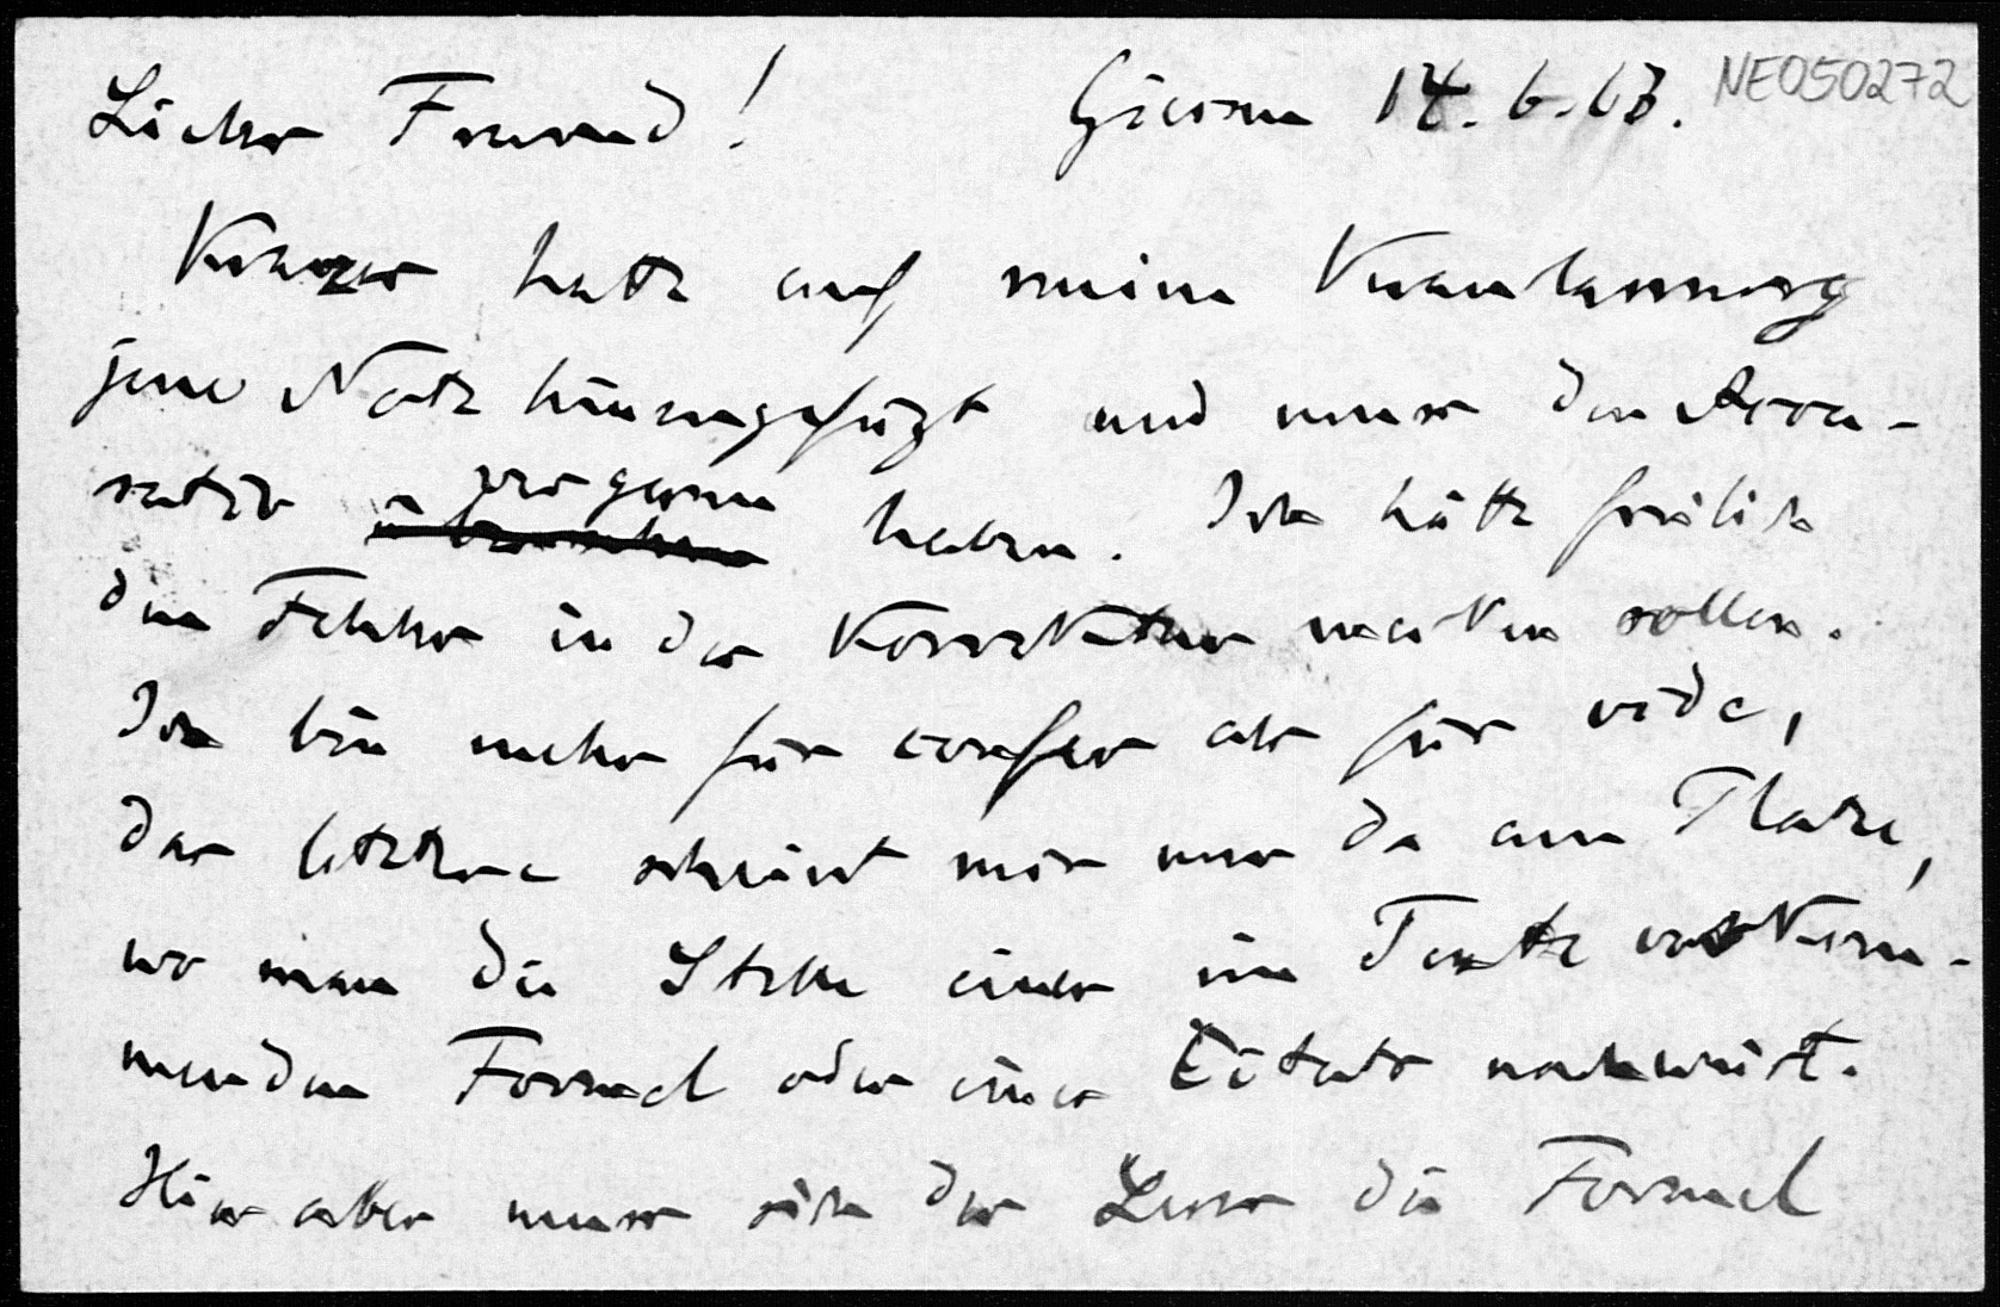 Lieber Freund! Giessen 14. 6. 63. NE050272
hatte auf meine Veranlassung
jene Notiz hinzugefügt und muss den Accu-
sativ vergessen haben. Ich hätte freilich
den Fehler in der Korrektur merken sollen.
Ich bin mehr für confer als für vide,
das letztere scheint mir nur da am Platze,
wo man die Stelle einer im Texte vorkom-
menden Formel oder eines Citats nachweist.
Hier aber muss sich der Leser die Formel